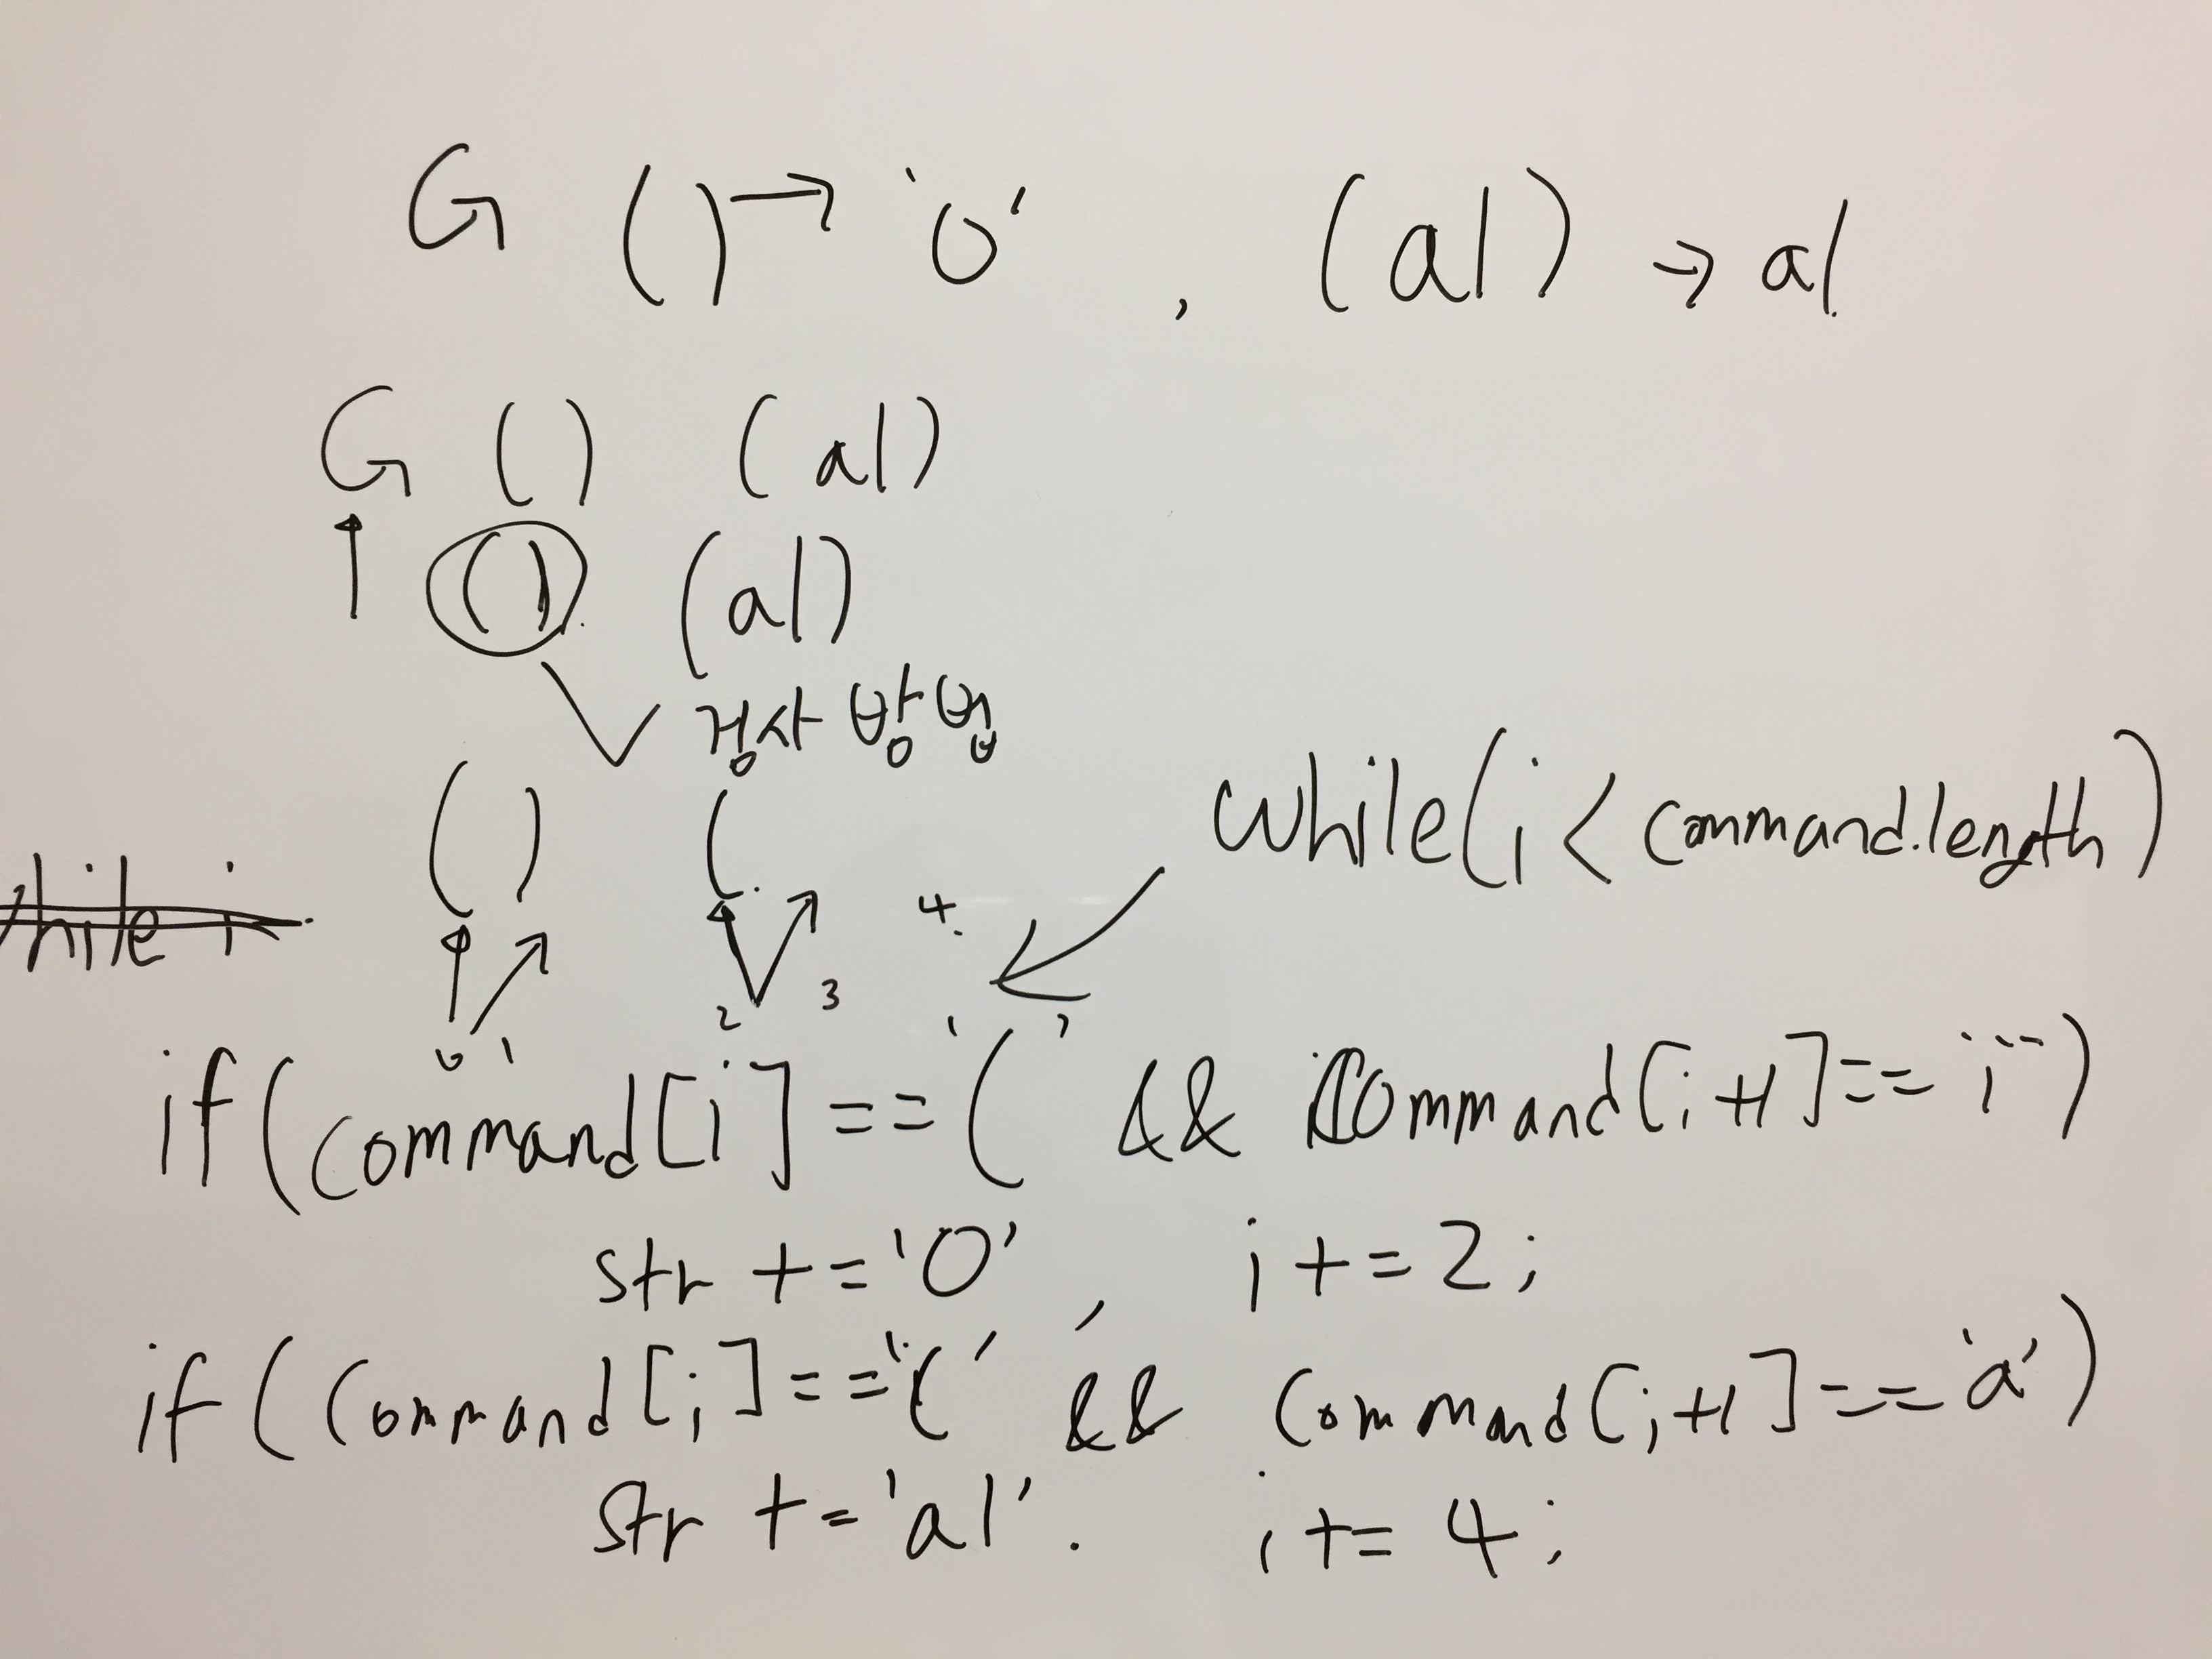 G () → 'O' , (al) → al
G () (al)
() (al)
검사 방법
while(i < command.length)
() (
4.
2 3
0 1
if(command[i] == '(' && command[i+1] ==
str += 'O' , i += 2;
if(command[i] == '(' && command[i+1] == 'a')
str += 'al'. i += 4;